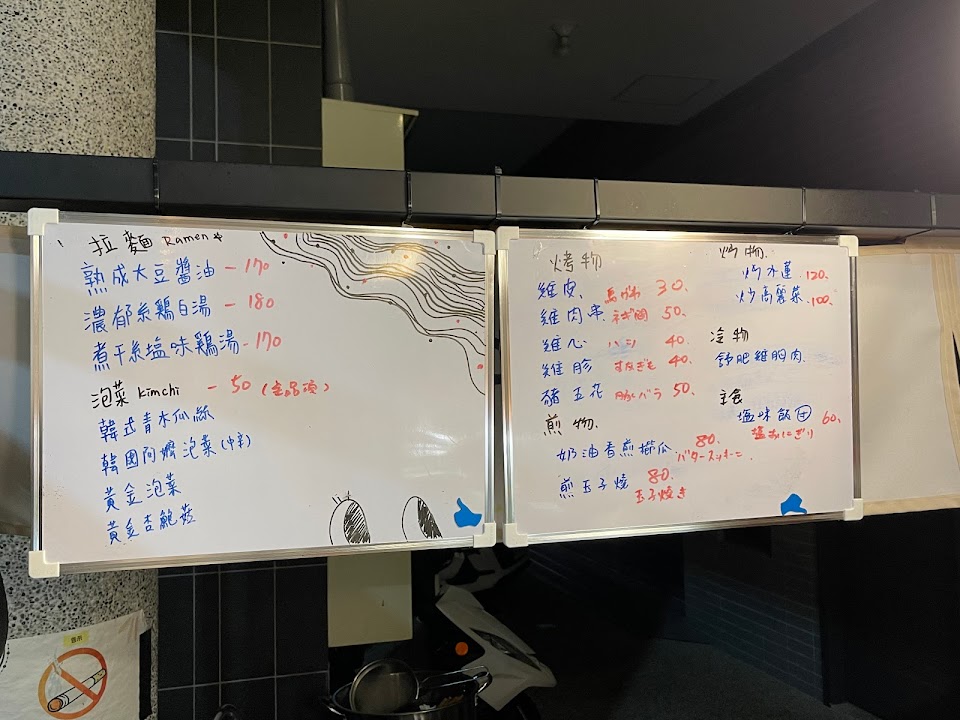 拉麵 Ramen
熟成大豆醬油 - 170
濃郁系鶏白湯 - 180
煮干系塩味鶏湯 - 170
泡菜 kimchi - 50 (全品項)
韓式青木瓜絲
韓國阿嬤泡菜(中辛)
黃金泡菜
黃金杏鮑菇
烤物
雞皮 鳥がわ 30、
雞肉串 ネギ間 50、
雞心 ハツ 40、
雞胗 すなぎも 40、
豬五花 豚バラ 50、
煎物
奶油香煎櫛瓜 80、
バターズッキーニ
煎玉子燒 80、
玉子焼き
炒物
炒水蓮 120、
炒高麗菜 100、
冷物
舒肥雞胸肉
主食
塩味飯団 60、
塩おにぎり